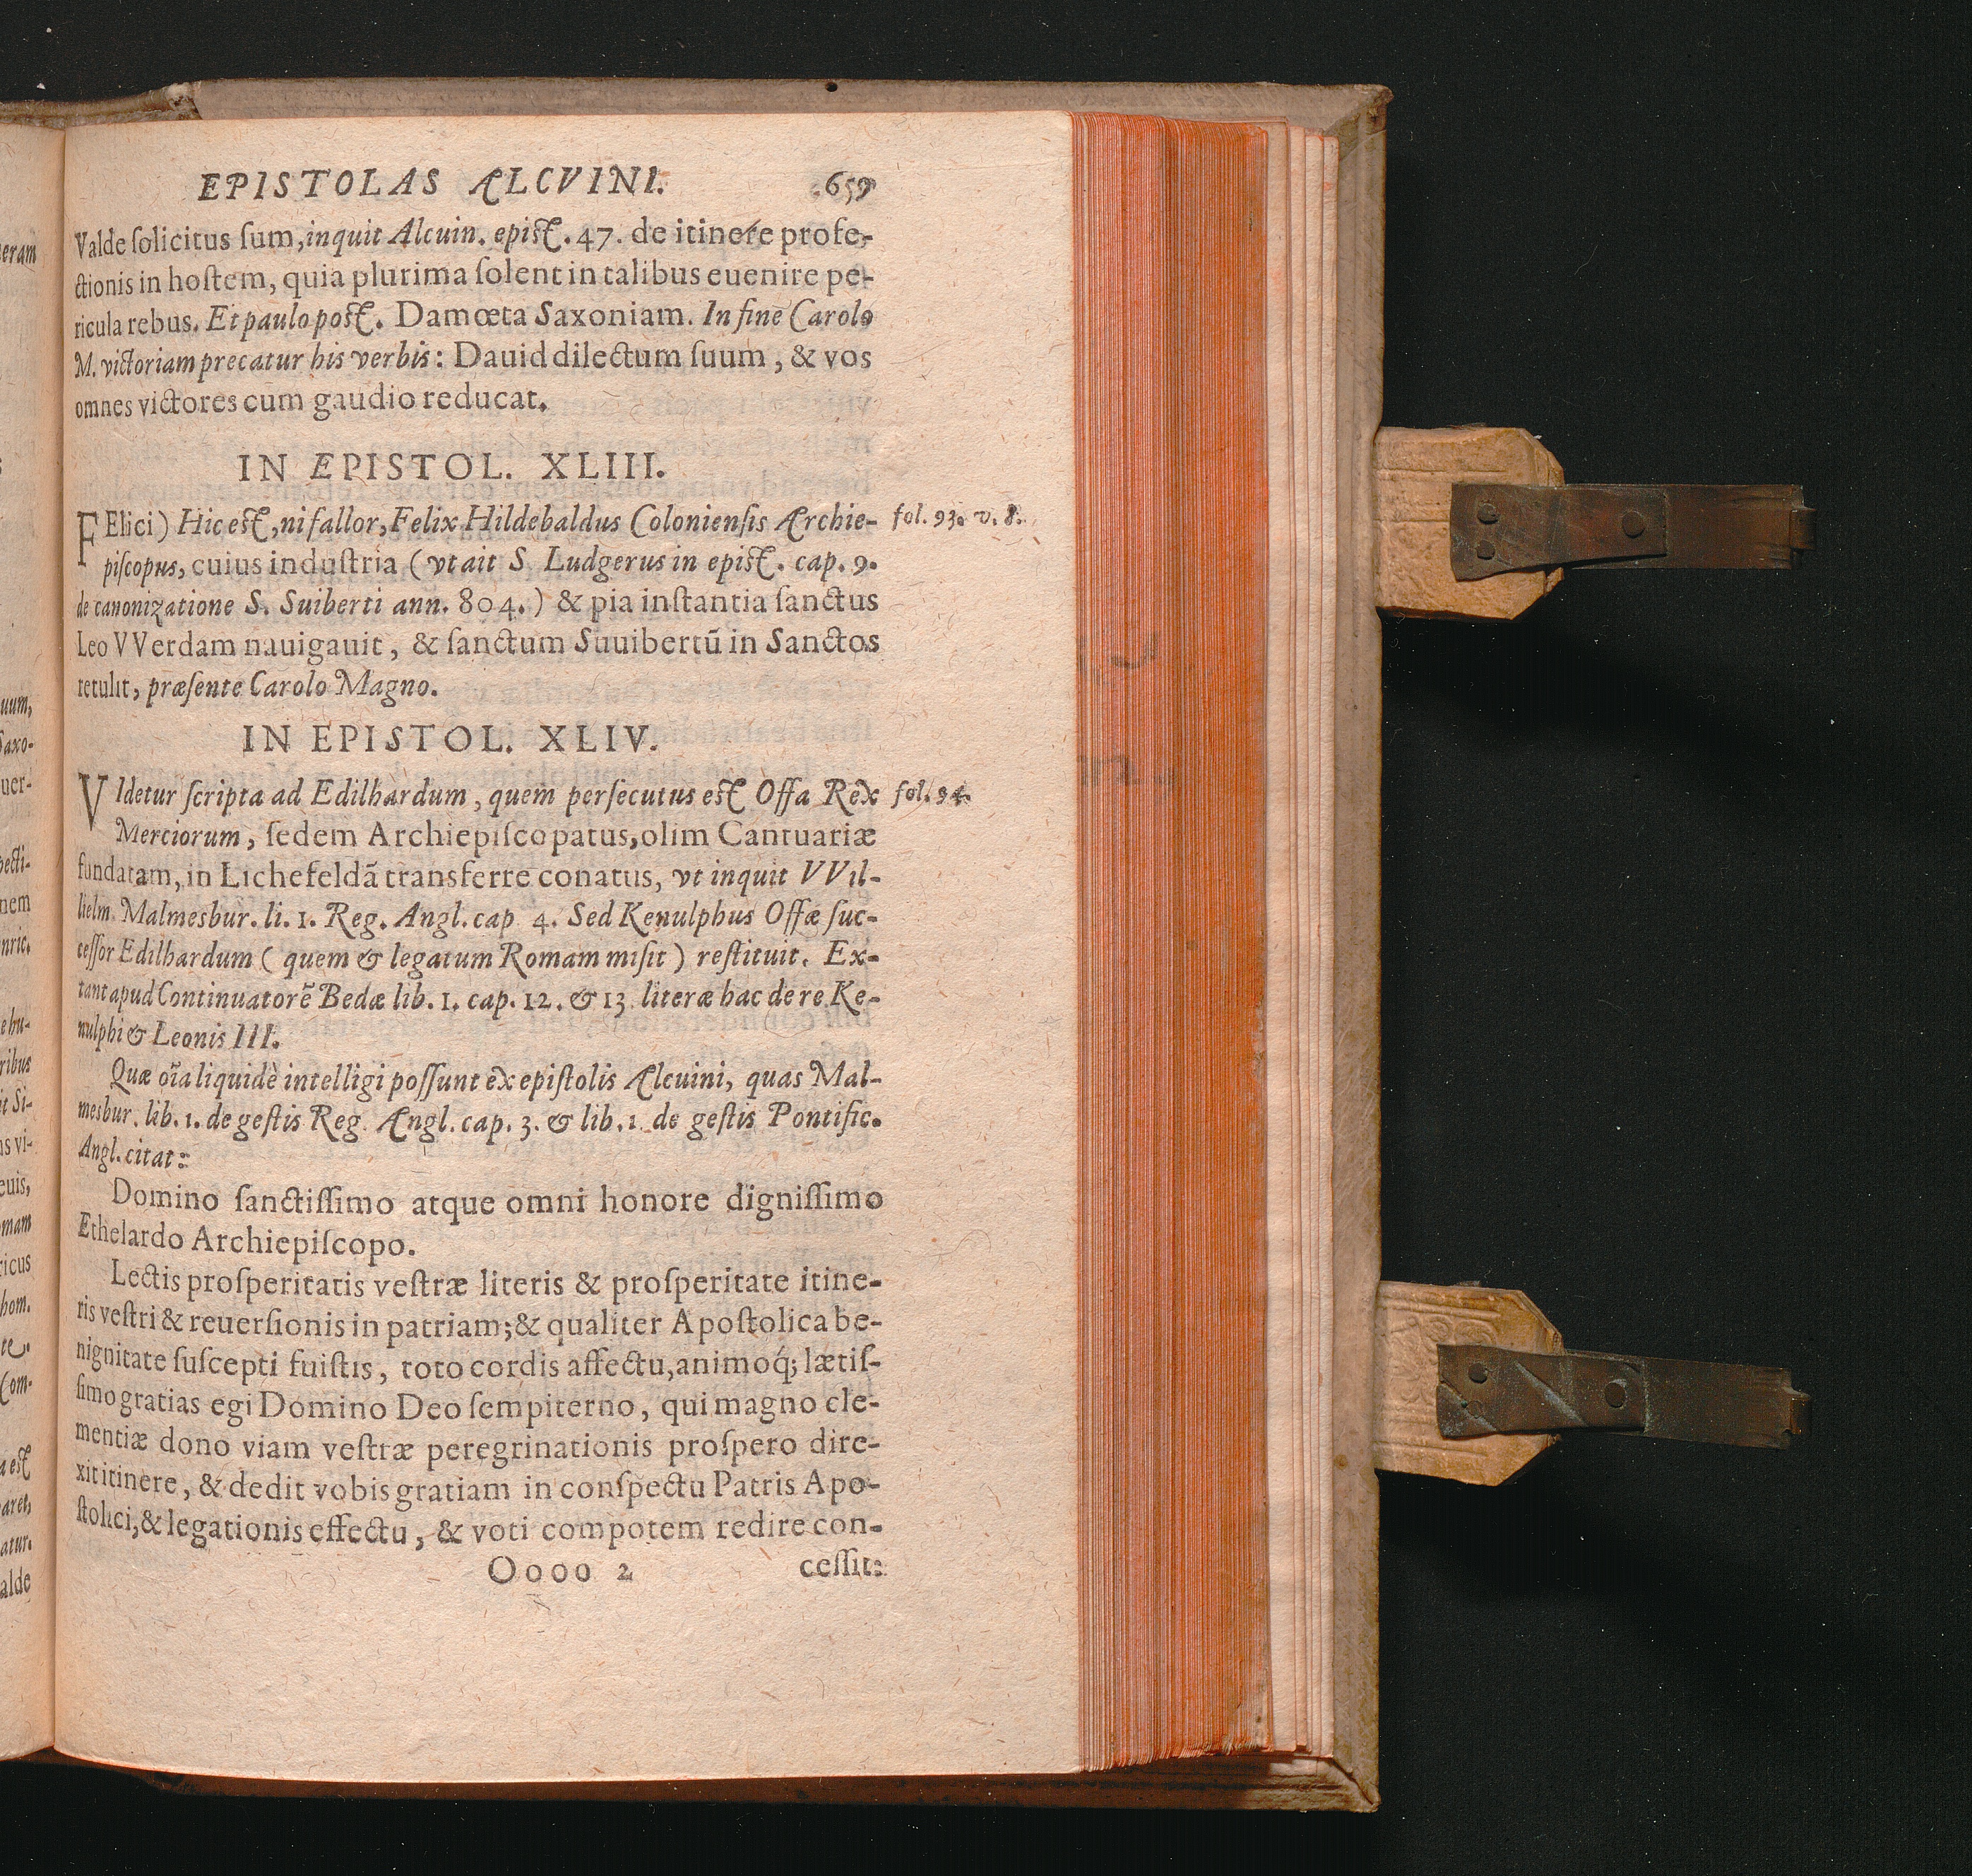 EPISTOLAS ALCVINI. 659
Valde ſolicitus ſum, inquit Alcuin. epiſt. 47. de itinere profe-
ctionis in hoſtem, quia plurima ſolent in talibus euenire pe-
ricula rebus. Et paulo poſt. Damœta Saxoniam. In fine Carolo
M. victoriam precatur his verbis: Dauid dilectum ſuum, & vos
omnes victores cum gaudio reducat.
IN EPISTOL. XLIII.
FElici) Hic eſt, ni fallor, Felix Hildebaldus Colonienſis Archie- fol. 93. v. 8.
piſcopus, cuius induſtria (vt ait S. Ludgerus in epiſt. cap. 9.
de canonizatione S. Suiberti ann. 804.) & pia inſtantia ſanctus
Leo VVerdam nauigauit, & ſanctum Suuibertū in Sanctos
retulit, præſente Carolo Magno.
IN EPISTOL. XLIV.
VIdetur ſcripta ad Edilhardum, quem perſecutus eſt Offa Rex fol. 94.
Merciorum, ſedem Archiepiſcopatus, olim Cantuariæ
fundatam, in Lichefeldā transferre conatus, vt inquit VVil-
lielm. Malmesbur. li. 1. Reg. Angl. cap 4. Sed Kenulphus Offæ ſuc-
ceſſor Edilhardum (quem & legatum Romam miſit) reſtituit. Ex-
tant apud Continuatorē Bedæ lib. 1. cap. 12. & 13 literæ hac de re Ke-
nulphi & Leonis III.
Quæ oīa liquidè intelligi poſſunt ex epiſtolis Alcuini, quas Mal-
mesbur. lib. 1. de geſtis Reg. Angl. cap. 3. & lib. 1. de geſtis Pontific.
Angl. citat:
Domino ſanctiſſimo atque omni honore digniſſimo
Ethelardo Archiepiſcopo.
Lectis proſperitatis veſtræ literis & proſperitate itine-
ris veſtri & reuerſionis in patriam; & qualiter Apoſtolica be-
nignitate ſuſcepti fuiſtis, toto cordis affectu, animoq́; lætiſ-
ſimo gratias egi Domino Deo ſempiterno, qui magno cle-
mentiæ dono viam veſtræ peregrinationis proſpero dire-
xit itinere, & dedit vobis gratiam in conſpectu Patris Apo-
ſtolici, & legationis effectu, & voti compotem redire con-
Oooo 2 ceſſit: